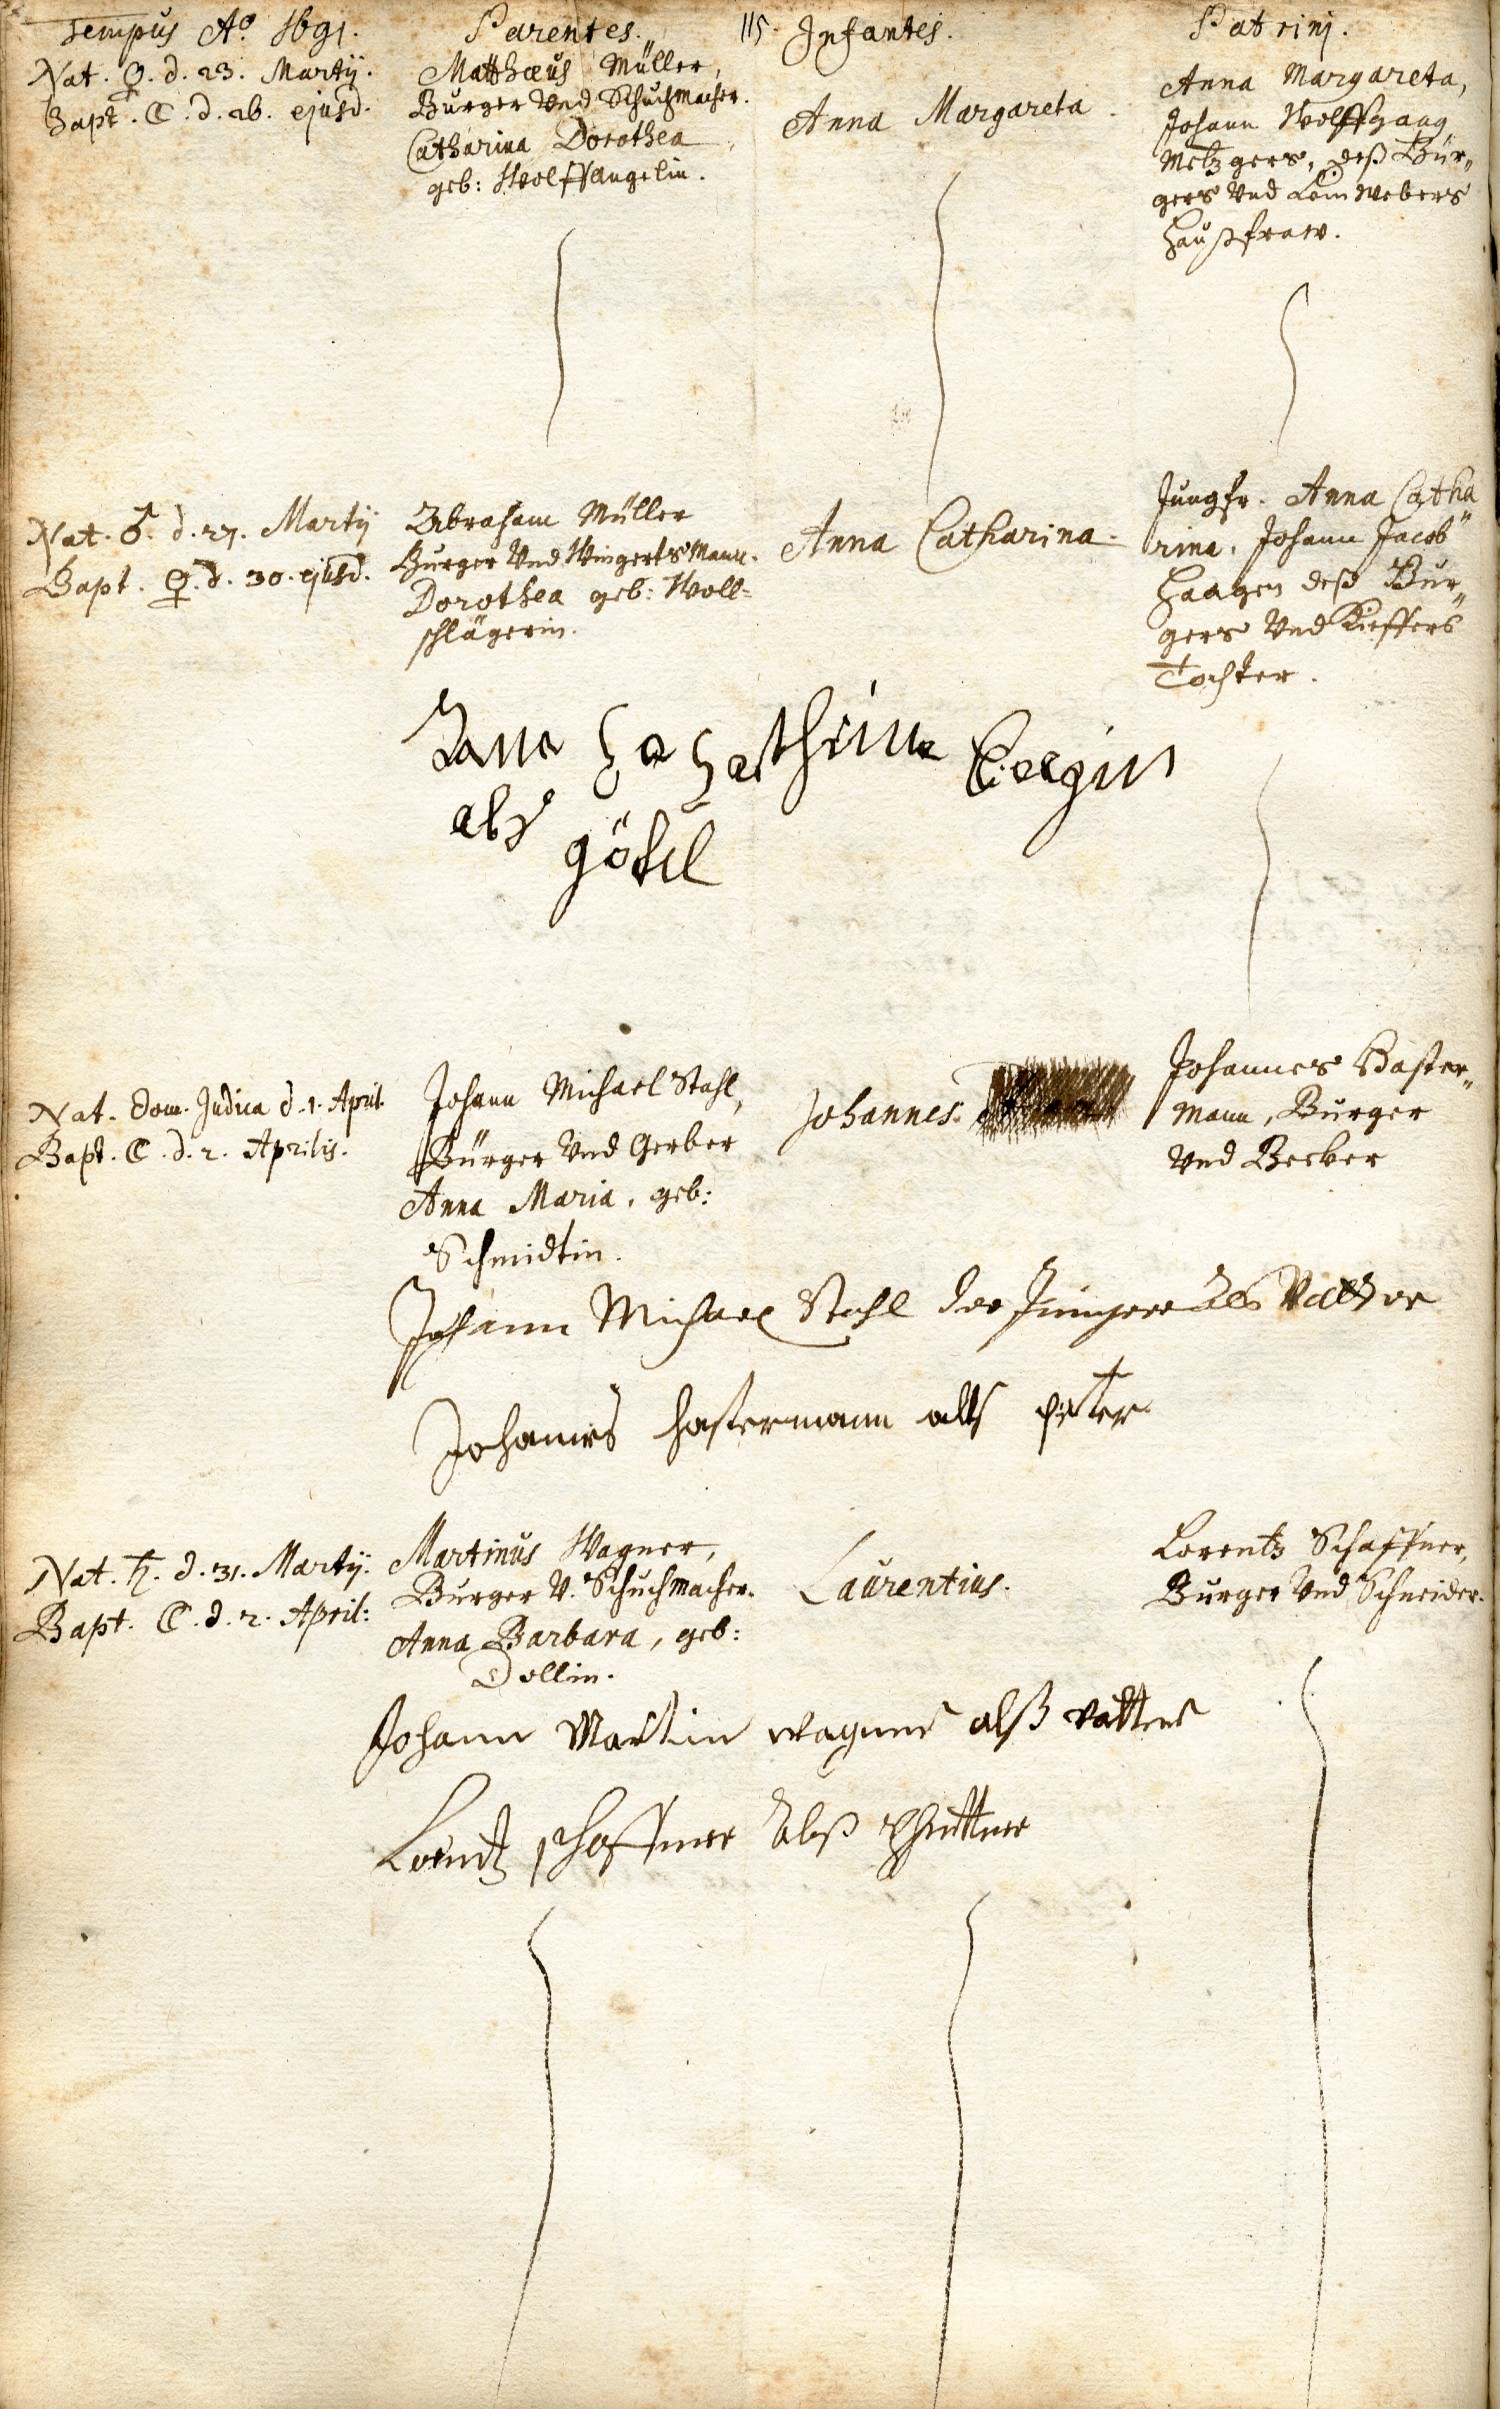 Tempus Aō 1691.
Parentes.
115.
Infantes.
Patrinj.
Nat. ♀. d. 23. Martÿ.
Bapt. ☾. d. 26. ejusd.
Matthæus Müller,
Burger Und Schuchmacher.
Catharina Dorothea
geb: Wolffangelin.
Anna Margareta.
Anna Margareta,
Johann Wolffgang
Metzgers, deß Bür„
gers Und Leinwebers
Haußfraw.
Nat. ♂. d. 27. Martÿ
Bapt. ♀. d. 30. ejusd.
Abraham Müller
Burger Und Wingertsmann.
Dorothea geb: Woll=
schlägerin.
Anna Catharina.
Jungfr. Anna Catha„
rina, Johann Jacob
Haagen deß Bur„
gers Und Kieffers
Tochter.
als
götel
Nat. Dom. Judica d. 1. April
Bapt. ☾. d. 2. Aprilis.
Johann Michael Stahl,
Bürger Und Gerber
Anna Maria, geb:
Schmidtin.
Johannes.
Johannes Haster„
mann, Burger
Und Becker
Johann Michael Stahl der Jünger Als Vatter
Johannes hastermann alls peter
Nat. ♄. d. 31. Martÿ.
Bapt. ☾. d. 2. April:
Martinus Wagner,
Burger V. Schuchmacher.
Anna Barbara, geb:
Dollin.
Laurentius.
Lorentz Schaffner,
Burger Und Schneider.
Johann Martin wagner alß vatter
Lorentz schaffner Alß